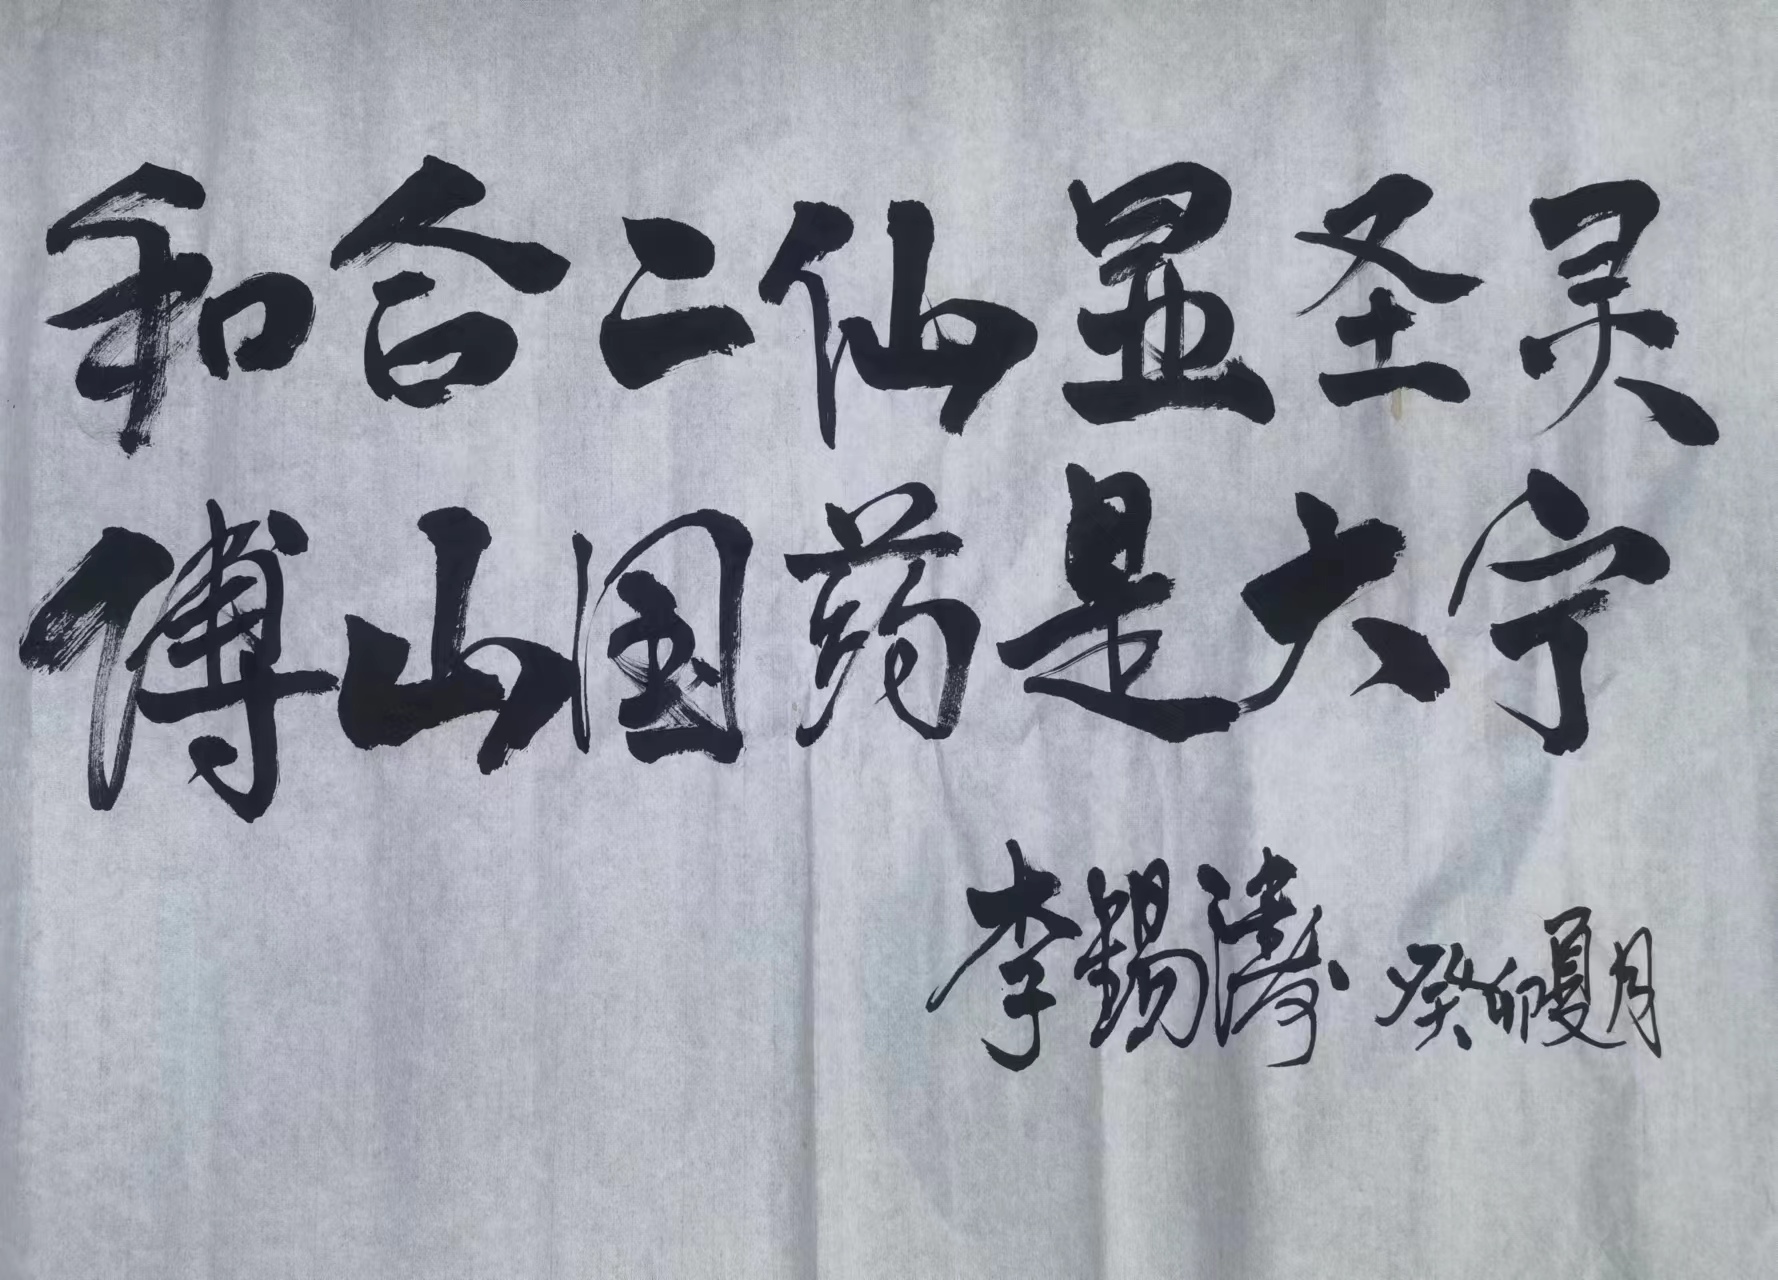 和合二仙显圣灵
傅山国药是大宁
李锡涛 癸卯夏月